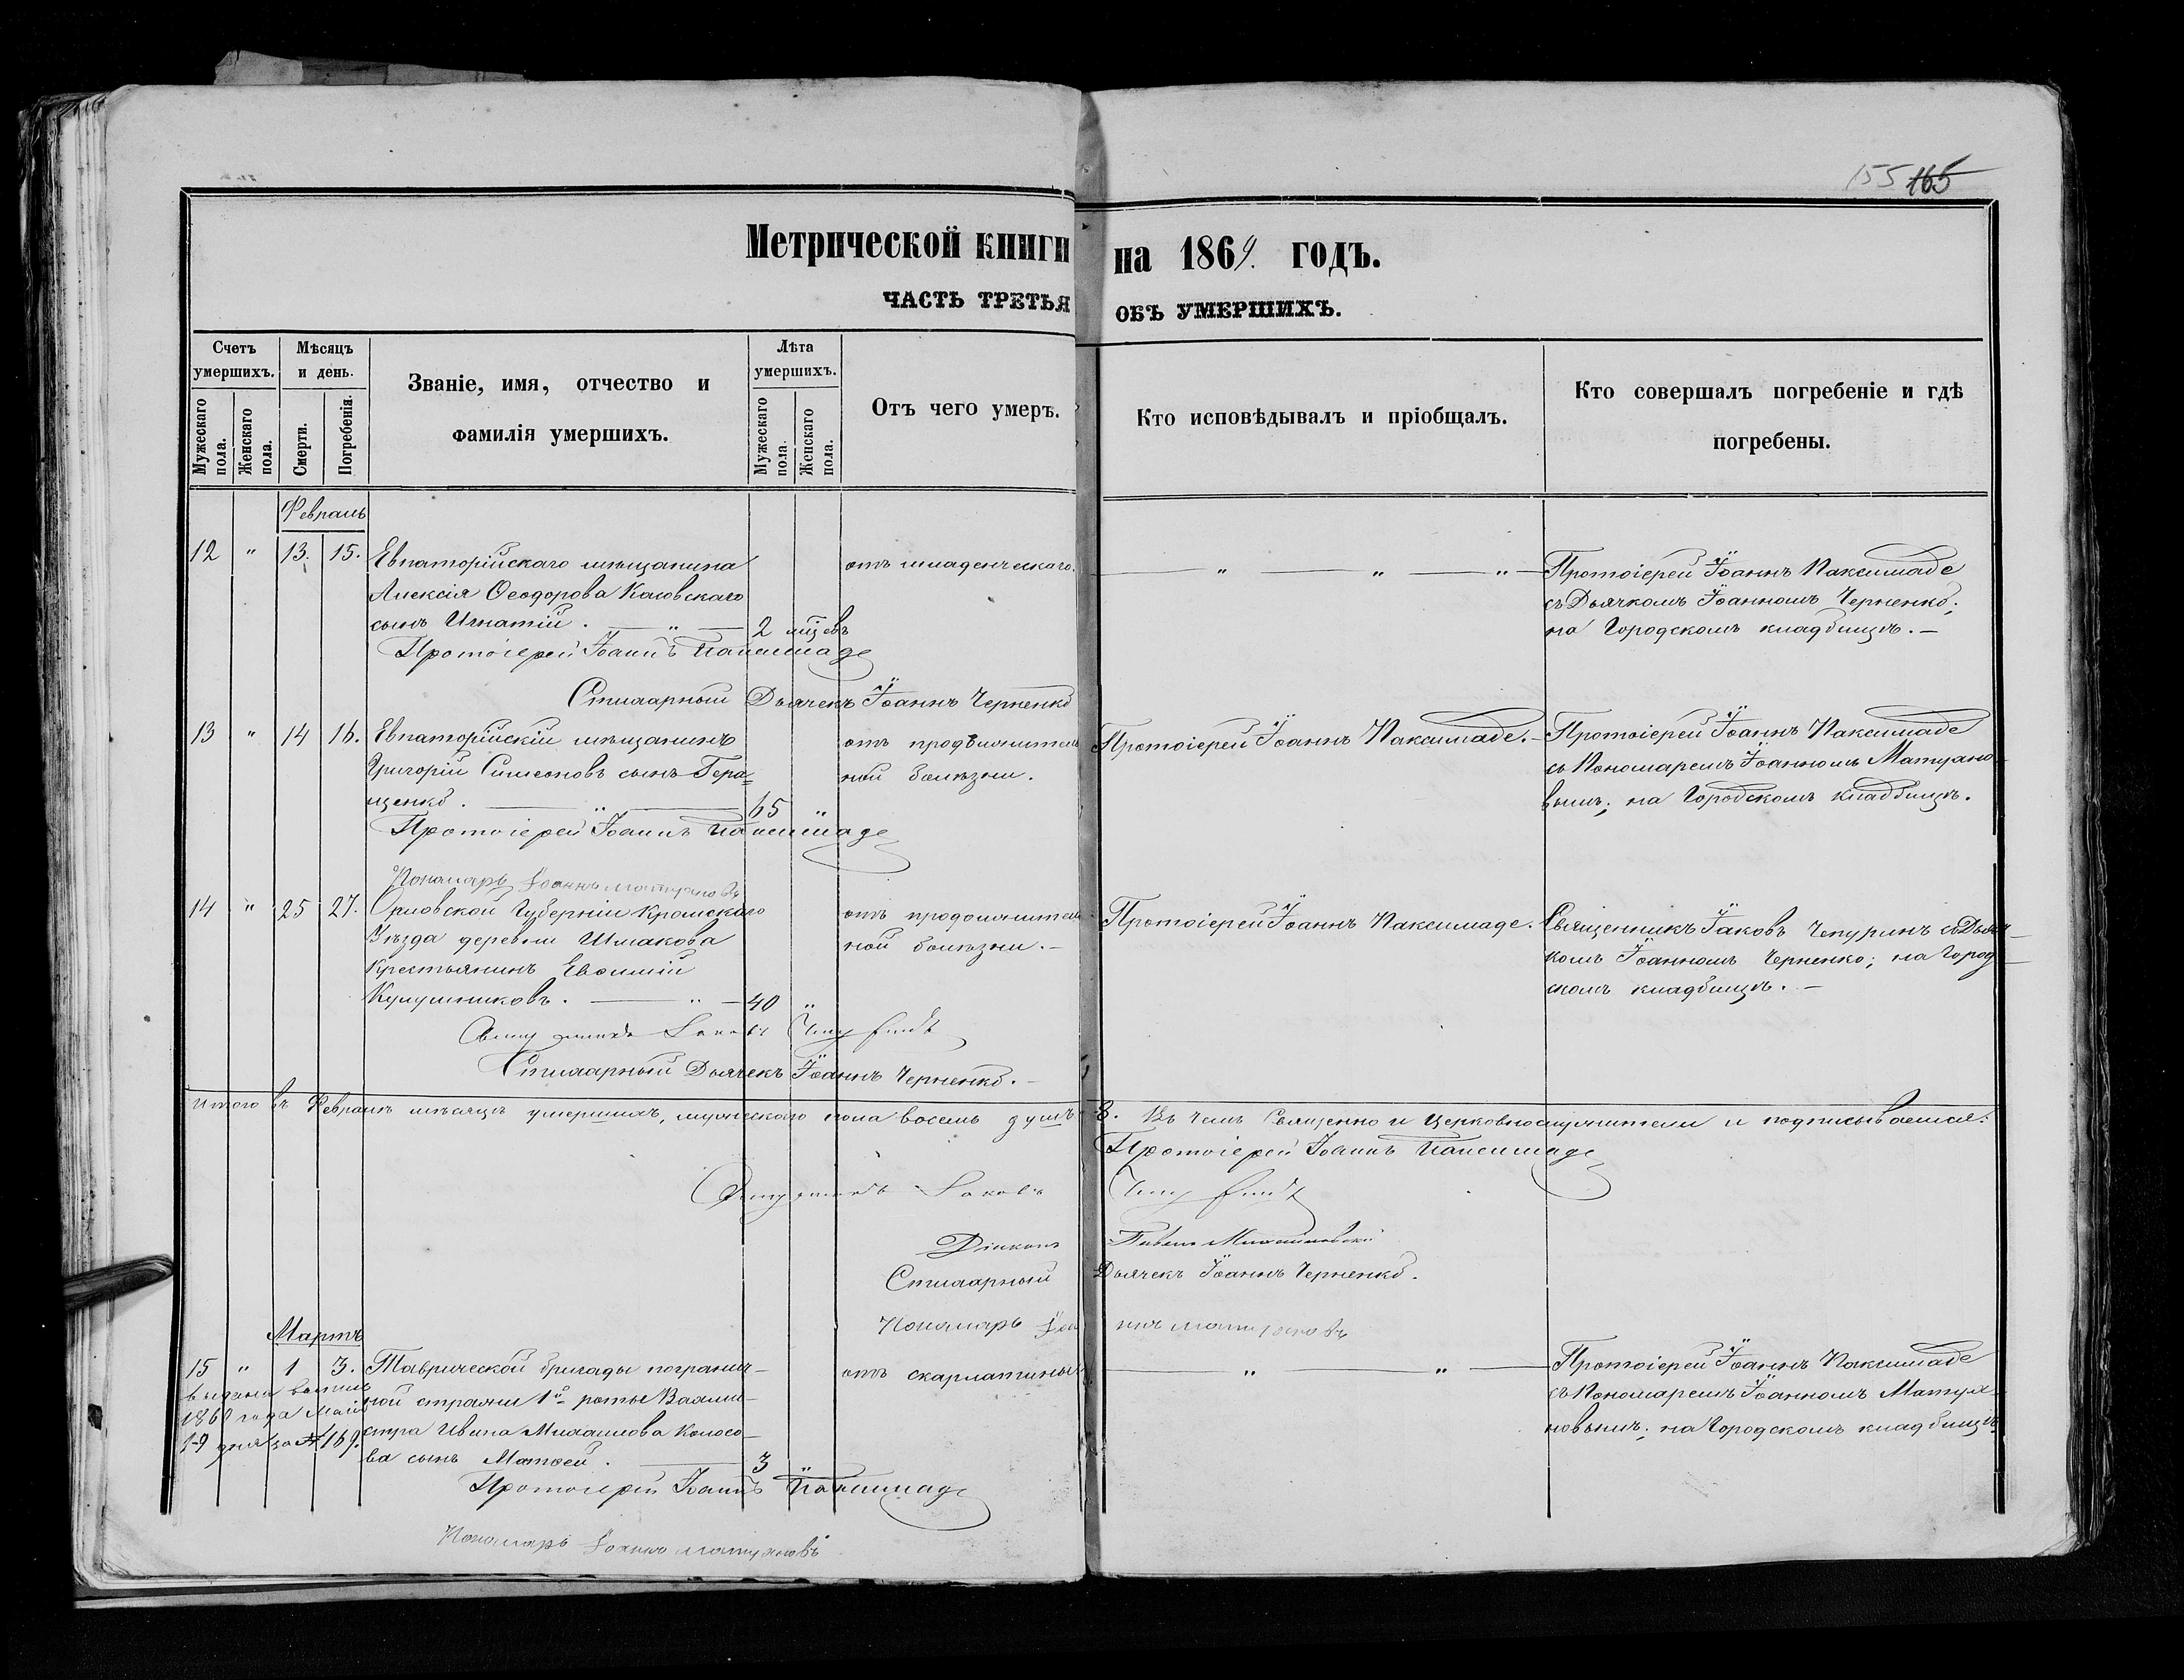 155 165
Метрической книги на 1869. годъ.
ЧАСТЬ ТРЕТЬЯ ОБЪ УМЕРШИХЪ.
Счетъ умершихъ.
Мужескаго пола.
Женскаго пола.
Мѣсяцъ и день.
Смерти.
Погребенія.
Званіе, имя, отчество и
фамилія умершихъ.
Лѣта умершихъ.
Мужескаго пола.
Женскаго пола.
Отъ чего умеръ.
Кто исповѣдывалъ и пріобщалъ.
Кто совершалъ погребеніе и гдѣ
погребены.
Февраль
12 " 13. 15.
Евпаторійскаго мѣщанина
Алексія Ѳеодорова
сынъ Игнатій. — " —
2 мцевъ
отъ младенческаго.
— " — " — " —
Протоіерей Іоаннъ Паксимаде
съ Дьячкомъ Іоанномъ Черненко;
на Городскомъ кладбищѣ. —
Протоіерей Іоаннъ Паксимаде
Стихарный Дьячекъ Іоаннъ Черненко
13 " 14 16.
Евпаторійскій мѣщанинъ
Григорій Симеоновъ сынъ Гера=
щенко. — " —
65 "
отъ продолжитель
ной болѣзни.
Протоіерей Іоаннъ Паксимаде. —
Протоіерей Іоаннъ Паксимаде
съ Пономаремъ Іоанномъ Матуано
вымъ; на Городскомъ кладбищѣ.
Протоіерей Іоаннъ Паксимаде
Пономарь Іоаннъ Матуановъ
14 " 25 27.
Орловской Губерніи Кромскаго
Уѣзда деревни Шмакова
Крестьянинъ Евѳимій
— " —
40 "
отъ продолжитель
ной болѣзни. —
Протоіерей Іоаннъ Паксимаде.
Священникъ Іаковъ Чепуринъ съ Дьяч
комъ Іоанномъ Черненко; на Город
скомъ кладбищѣ. —
Священникъ Іаковъ Чепуринъ
Стихарный Дьячекъ Іоаннъ Черненко. —
Итого въ Февралѣ мѣсяцѣ умершихъ, мужескаго пола восемь душъ 8. Въ чемъ Священно и Церковнослужители и подписываемся:
Протоіерей Іоаннъ Паксимаде
Священникъ Іаковъ Чепуринъ
Діаконъ Павелъ
Стихарный Дьячекъ Іоаннъ Черненко.
Пономарь Іоаннъ Матуановъ
Мартъ
15 " 1 3.
года
дня за № 169.
Таврической бригады погранич—
ной стражи 1й роты Вахми—
стра Ивана Михаилова Колосо—
ва сынъ Матѳей. —
3 "
отъ скарлатины
— " — " —
Протоіерей Іоаннъ Паксимаде
съ Пономаремъ Іоанномъ Матуа
новымъ; на Городскомъ кладбищѣ.
Протоіерей Іоаннъ Паксимаде
Пономарь Іоаннъ Матуановъ